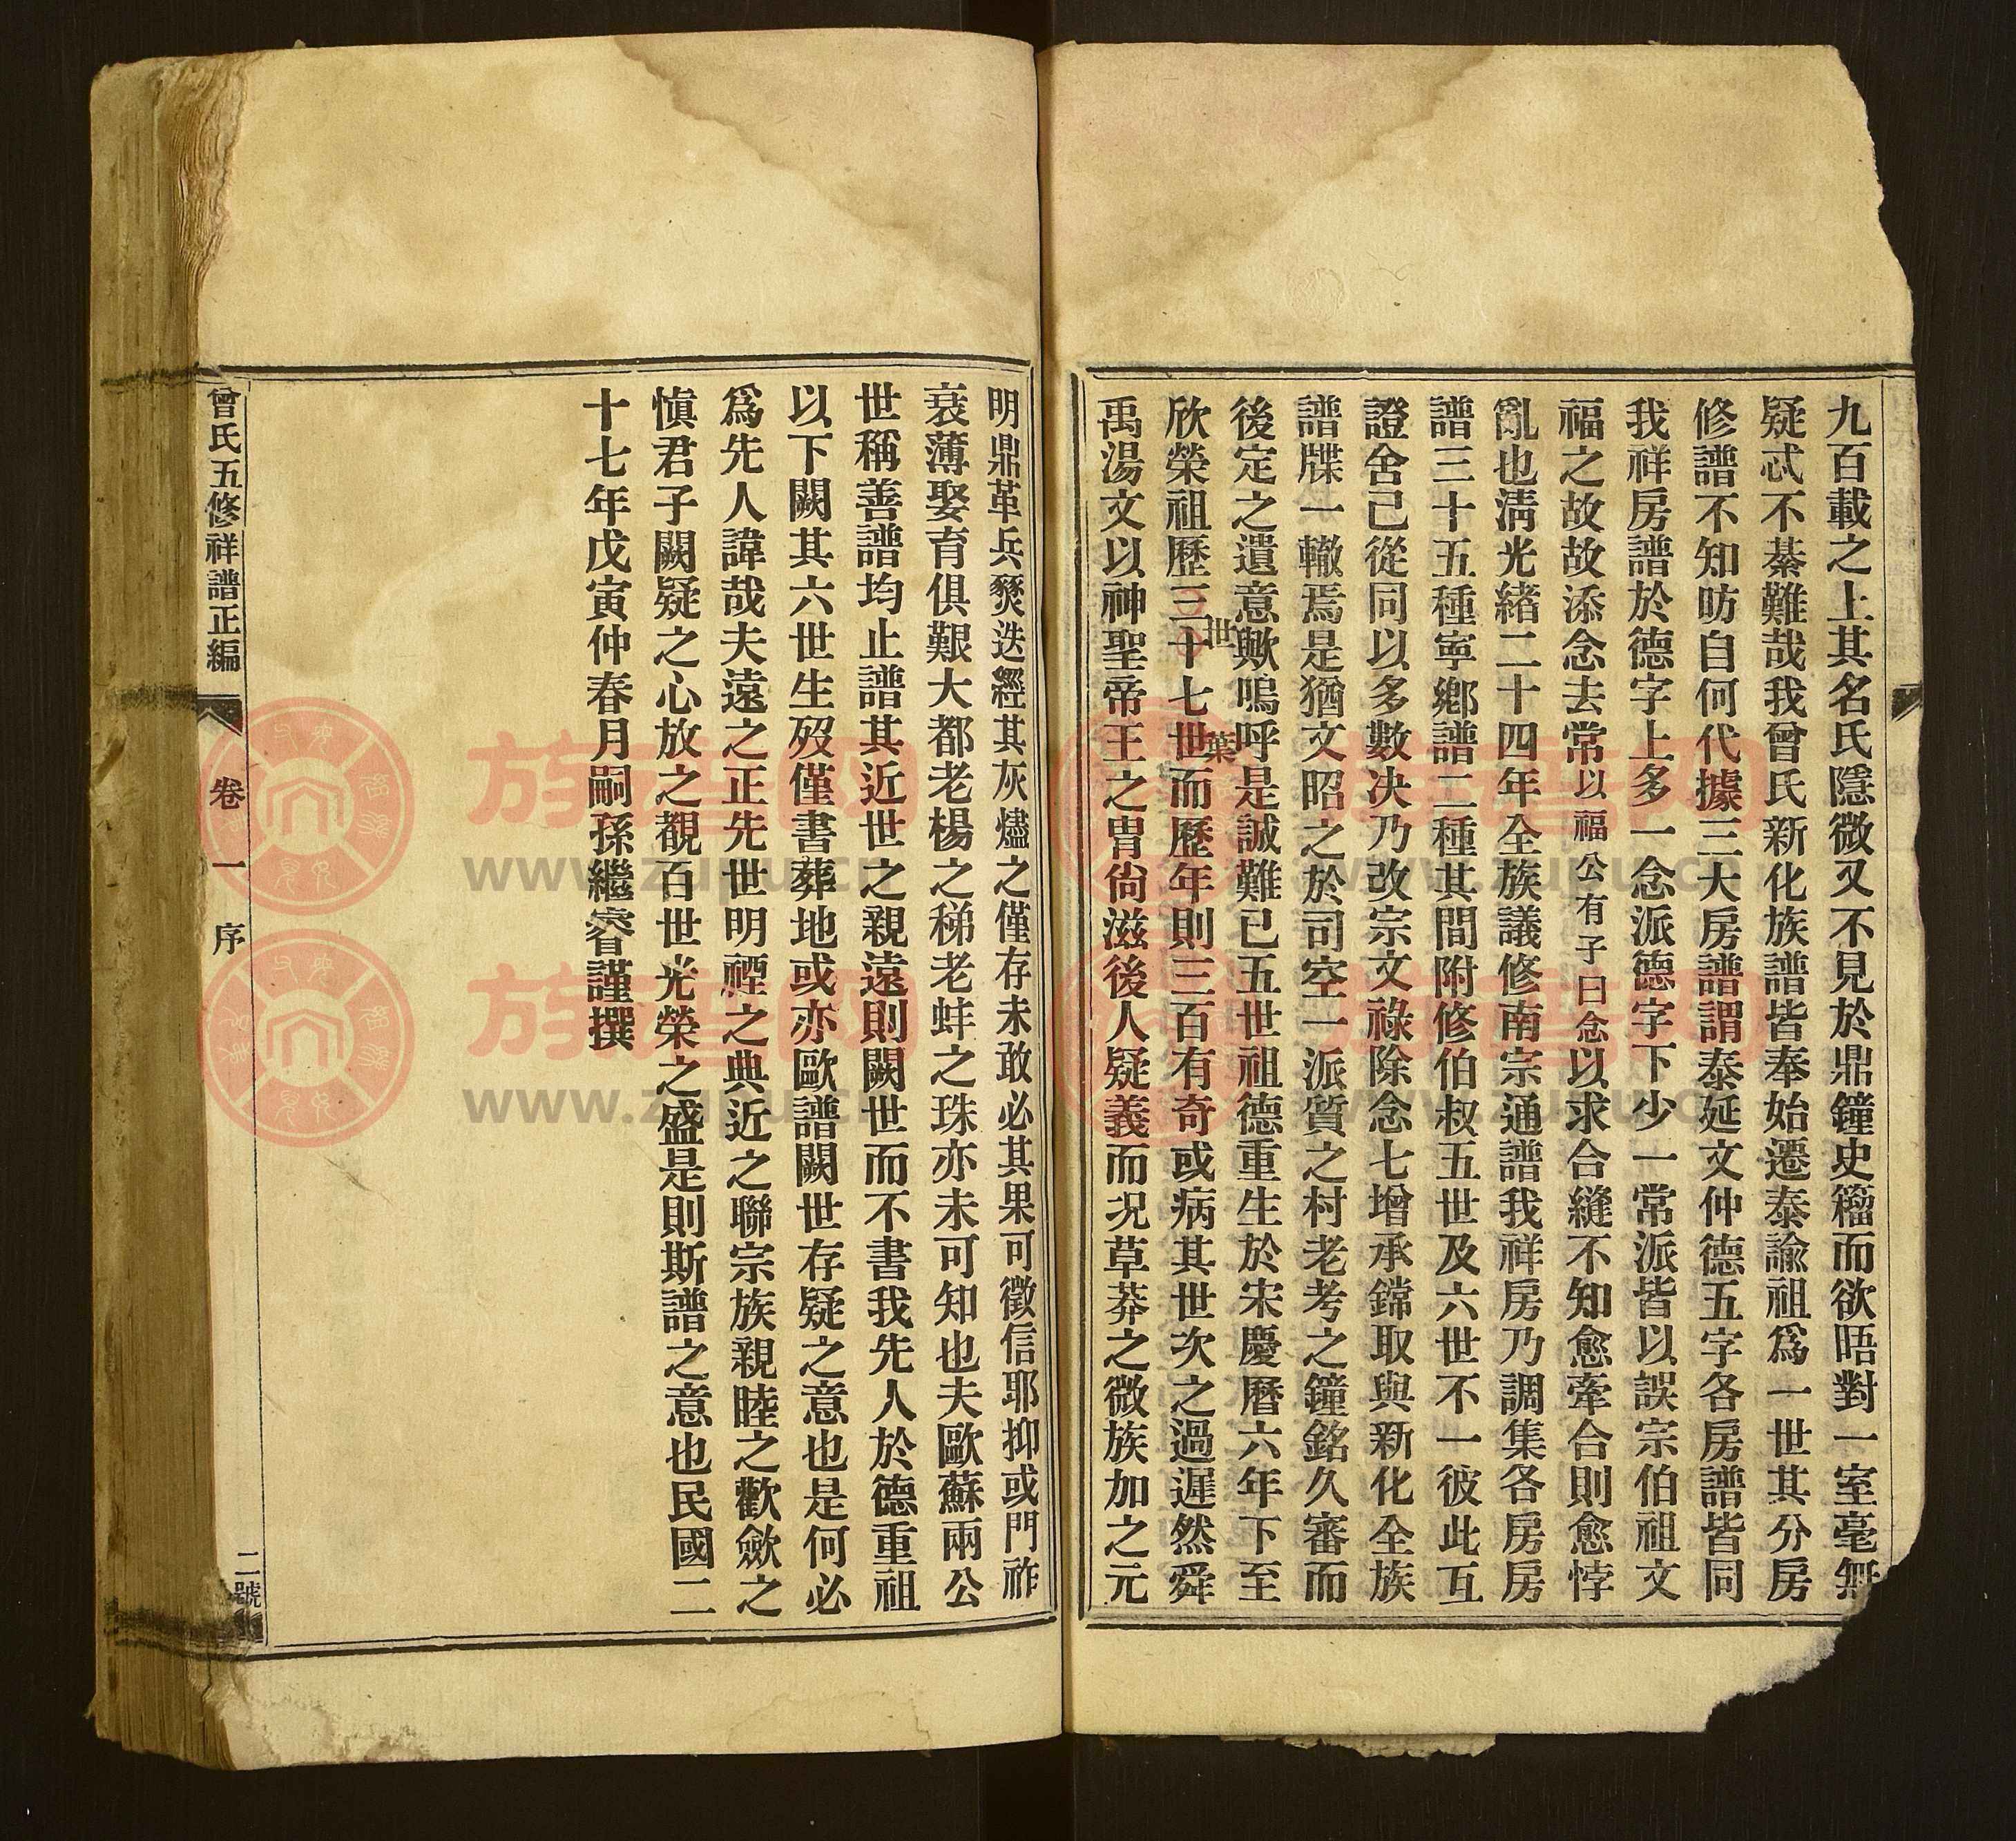 九百載之上其名氏隱微又不見於鼎鐘史籀而欲晤對一室毫無
疑忒不綦難哉我曾氏新化族譜皆奉始遷泰諭祖爲一世其分房
修譜不知昉自何代據三大房譜謂泰延文仲德五字各房譜皆同
我祥房譜於德字上多一念派德字下少一常派皆以誤宗伯祖文
福之故故添念去常以福公有子曰念以求合縫不知愈牽合則愈悖
亂也淸光緖二十四年全族議修南宗通譜我祥房乃調集各房房
譜三十五種寧鄉譜二種其間附修伯叔五世及六世不一彼此互
證舍己從同以多數決乃改宗文祿除念七增承鐺取與新化全族
譜牒一轍焉是猶文昭之於司空一派質之村老考之鐘銘久審而
後定之遺意歟嗚呼是誠難已五世祖德重生於宋慶曆六年下至
世葉
欣榮祖歷三十七世而歷年則三百有奇或病其世次之過遲然舜
禹湯文以神聖帝王之冑尙滋後人疑義而况草莽之微族加之元
明鼎革兵燹迭經其灰燼之僅存未敢必其果可徵信耶抑或門祚
衰薄娶育俱艱大都老楊之稊老蚌之珠亦未可知也夫歐蘇兩公
世稱善譜均止譜其近世之親遠則闕世而不書我先人於德重祖
以下闕其六世生歿僅書葬地或亦歐譜闕世存疑之意也是何必
爲先人諱哉夫遠之正先世明禋之典近之聯宗族親睦之歡歛之
愼君子闕疑之心放之覩百世光榮之盛是則斯譜之意也民國二
十七年戊寅仲春月嗣孫繼睿謹撰
曾氏五修祥譜正編
卷一
序
二號
族譜网
www.zupu.cn
族譜网
www.zupu.cn
族譜网
www.zupu.cn
族譜网
www.zupu.cn